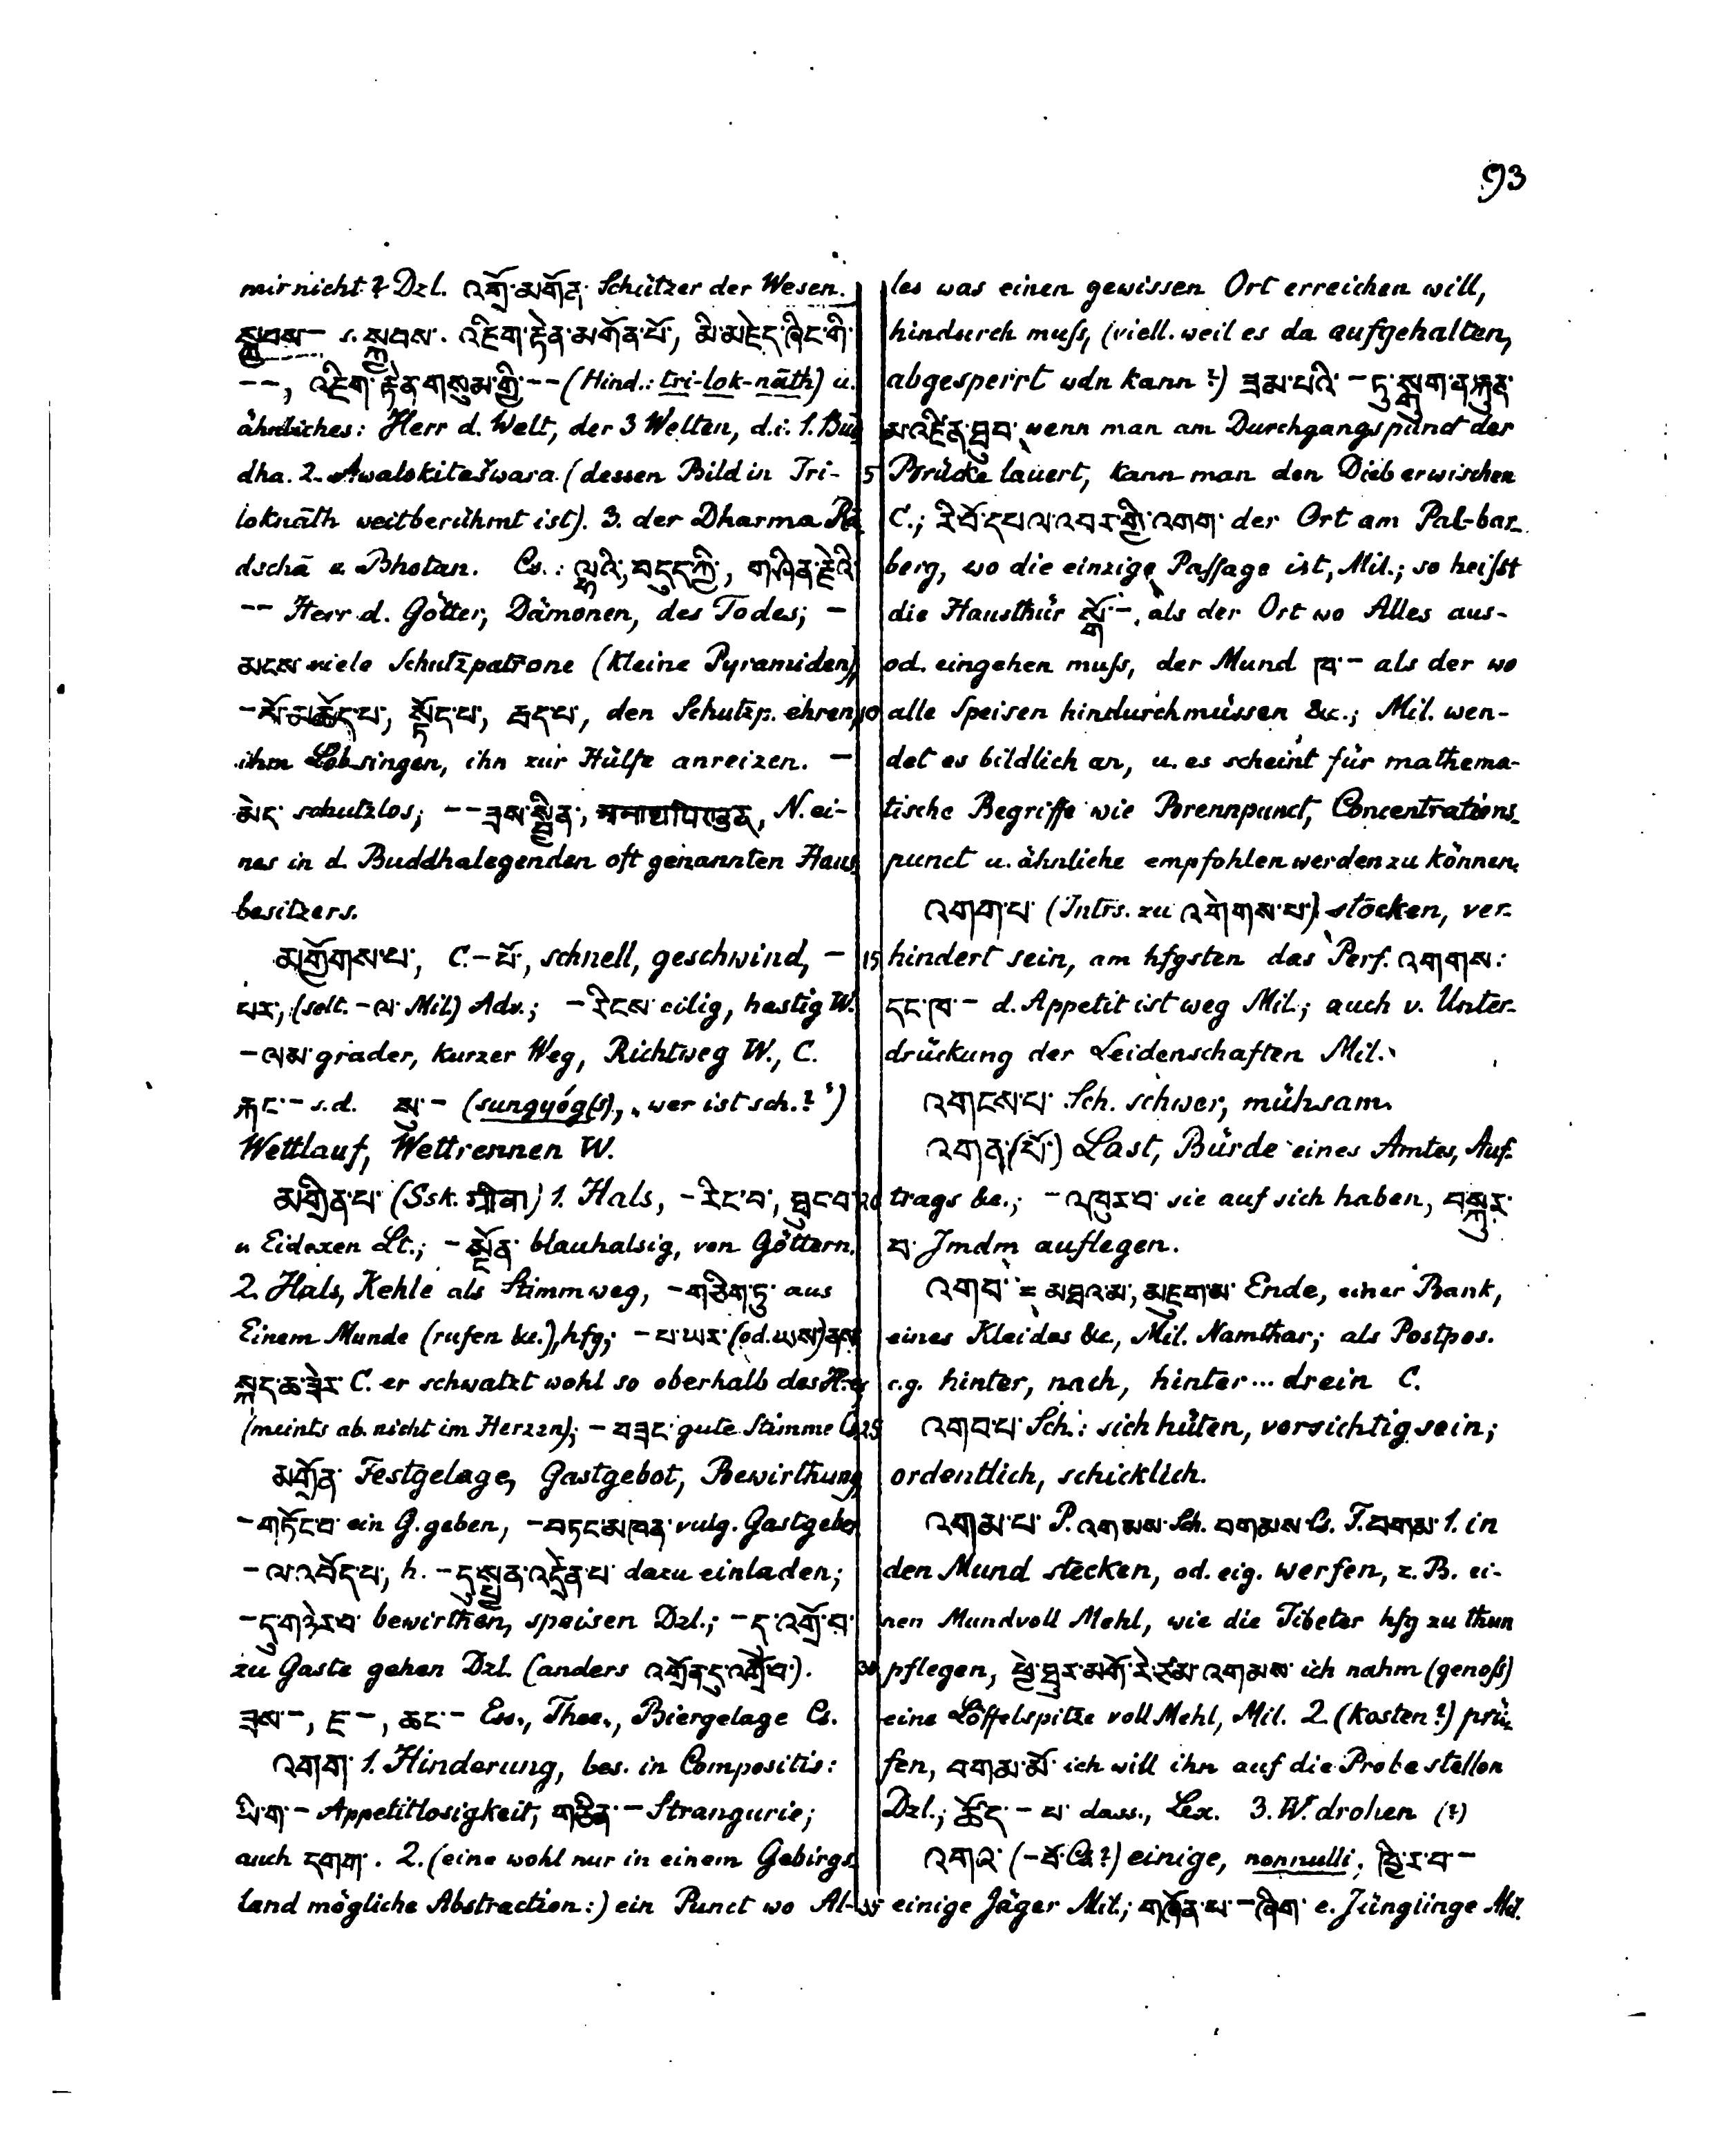 93
mir nicht? Dzl. འགྲོ་མགོན་ Schützer der Wesen.
སྐྱབས– s. སྐྱབས་. འཇིག་རྟེན་མགོན་པོ་, མི་མཇེད་ཞིང་གི་
– –, འཇིག་རྟེན་གསུམ་གྱི་ – – (Hind.: tri-lok-nāth) u.
ähnliches: Herr d. Welt, der 3 Welten, d.i. 1. Bud
dha. 2. Awalokitešwara (dessen Bild in Tri-
loknāth weitberühmt ist). 3. der Dharma Rā
dschā v. Bhotan. Cs.: ལྷའི་, བདུད་ཀྱི་, གཤིན་རྗེའི་
– – Herr d. Götter, Dämonen, des Todes; –
མངས་ viele Schutzpatrone (kleine Pyramiden),
–པོ་མཆོད་པ་, སྟོད་པ་, རྦད་པ་, den Schutzp. ehren,
ihm Lobsingen, ihn zur Hülfe anreizen. –
མེད་ schutzlos; – –ཟས་སྦྱིན་, N. ei-
nes in d. Buddhalegenden oft genannten Haus
besitzers.
མགྱོགས་པ་, C. –པོ་, schnell, geschwind, –
པར་, (selt. –ལ་ Mil.) Adv.; –རིངས་ eilig, hastig W.
–ལམ་ grader, kurzer Weg, Richtweg W., C.
རྐང་– s.d. སུ་– (sungyóg(s), „wer ist sch.?“)
Wettlauf, Wettrennen W.
མགྲིན་པ་ (Ssk. ग्रीवा) 1. Hals, –རིང་བ་, ཐུང་བ་
u Eidexen Lt.; –སྔོན་ blauhalsig, von Göttern.
2. Hals, Kehle als Stimmweg, –གཅིག་ཏུ་ aus
Einem Munde (rufen &c.), hfg; –པ་ཡར་ (od. ཡས་) ནས་
སྐད་ཆ་ཟེར་ C. er schwatzt wohl so oberhalb des H.es
(meints ab. nicht im Herzen); –བཟང་ gute Stimme Cs.
མགྲོན་ Festgelage, Gastgebot, Bewirthung,
–གཏོང་བ་ ein G. geben, –བཏང་མཁན་ vulg. Gastgeber
–ལ་འབོད་པ་, h. –དུ་སྤྱན་འདྲེན་པ་ dazu einladen;
–དུ་གཉེར་བ་ bewirthen, speisen Dzl.; –ད་འགྲོ་བ་
zu Gaste gehen Dzl. (anders འགྲོན་དུ་འགྲོ་བ་).
ཟས་–, ཇ་–, ཆང་– Ess., Thee., Biergelage Cs.
འགག་ 1. Hinderung, bes. in Compositis:
ཡི་ག་– Appetitlosigkeit, གཅིན་– Strangurie;
auch དགག་. 2. (eine wohl nur in einem Gebirgs-
land mögliche Abstraction:) ein Punct wo Al-
les was einen gewissen Ort erreichen will,
hindurch muſs, (viell. weil es da aufgehalten,
abgesperrt wdn kann?) ཟམ་པའི་ –ཏུ་སྒུག་ན་རྐུན་
མ་འཛིན་ཐུབ་ wenn man am Durchgangspunct der
Brücke lauert, kann man den Dieb erwischen
C.; རི་བོ་དཔལ་འབར་གྱི་འགག་ der Ort am Pal-bar-
berg, wo die einzige Passage ist, Mil.; so heiſst
die Hausthür སྒོ་–, als der Ort wo Alles aus-
od. eingehen muſs, der Mund ཁ་– als der wo
alle Speisen hindurchmüssen &c.; Mil. wen-
det es bildlich an, u. es scheint für mathema-
tische Begriffe wie Brennpunct, Concentrations-
punct u. ähnliche empfohlen werden zu können.
འགག་པ་ (Intrs. zu འགེགས་པ་) stocken, ver-
hindert sein, am hfgsten das Perf. འགགས་:
དང་ཁ་– d. Appetit ist weg Mil.; auch v. Unter-
drückung der Leidenschaften Mil.
འགངས་པ་ Sch. schwer, mühsam.
འགན་(པོ་) Last, Bürde eines Amtes, Auf-
trags &c.; –འཁུར་བ་ sie auf sich haben, བསྐུར་
བ་ Jmdm auflegen.
འགབ་ = མཐའ་མ་, མཇུག་མ་ Ende, einer Bank,
eines Kleides &c, Mil. Namthar; als Postpos.
c.g. hinter, nach, hinter...drein C.
འགབ་པ་ Sch.: sich hüten, vorsichtig sein;
ordentlich, schicklich.
འགམ་པ་ P. འགམས་ Sch. བགམས་ Cs. F. བགམ་ 1. in
den Mund stecken, od. eig. werfen, z. B. ei-
nen Mundvoll Mehl, wie die Tibeter hfg zu thun
pflegen, ཕྱེ་ཐུར་མགོ་རེ་ཙམ་འགམས་ ich nahm (genoſs)
eine Löffelspitze voll Mehl, Mil. 2. (kosten?) prü-
fen, བགམ་མོ་ ich will ihn auf die Probe stellen
Dzl.; ཚོད་–པ་ dass., Lex. 3. W. drohen (?)
འགའ་ (–བོ་ Cs?) einige, nonnulli, ཁྱི་ར་བ་–
einige Jäger Mil.; གཞོན་པ་–ཞིག་ e. Jünglinge Mil.